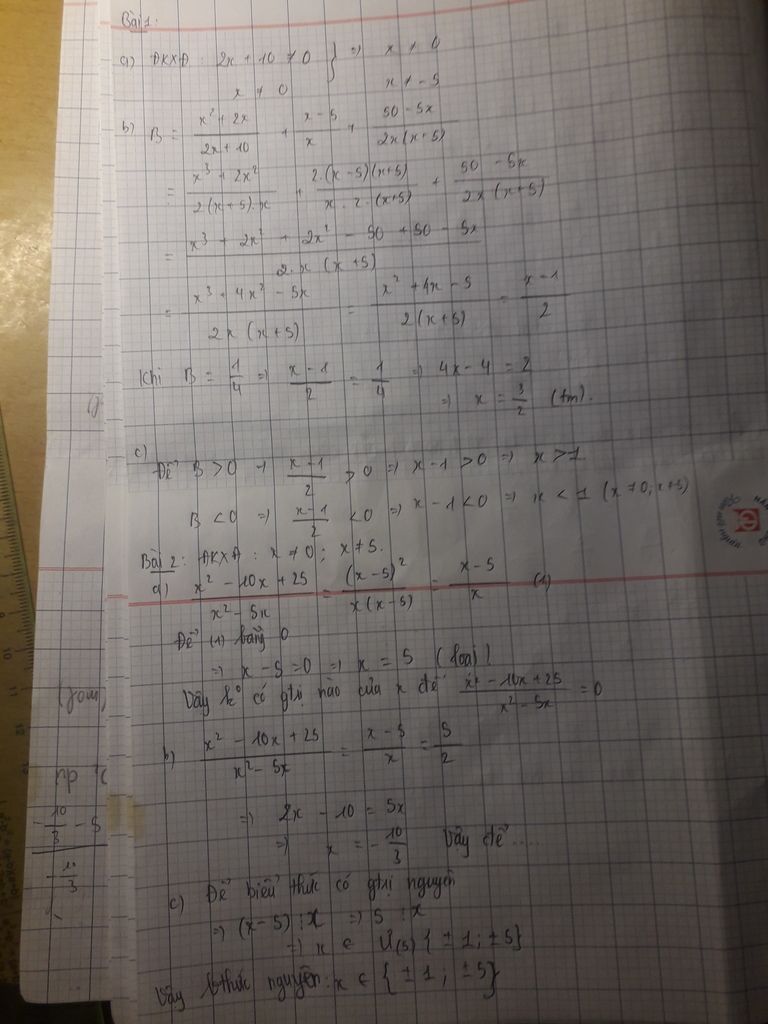 Bài 1:
a) ĐKXĐ: 2x + 10 ≠ 0 } => x ≠ 0
x ≠ 0 x ≠ -5
b) B = (x² + 2x)/(2x + 10) + (x - 5)/x + (50 - 5x)/(2x(x+5))
= (x³ + 2x²)/(2(x+5).x) + (2.(x-5)(x+5))/(x.2.(x+5)) + (50 - 5x)/(2x(x+5))
= (x³ + 2x² + 2x² - 50 + 50 - 5x)/(2.x(x+5))
= (x³ + 4x² - 5x)/(2x(x+5)) = (x² + 4x - 5)/(2(x+5)) = (x-1)/2
Khi B = 1/4 => (x-1)/2 = 1/4 => 4x - 4 = 2
=> x = 3/2 (tm).
c)
Để B > 0 => (x-1)/2 > 0 => x - 1 > 0 => x > 1
B < 0 => (x-1)/2 < 0 => x - 1 < 0 => x < 1 (x ≠ 0; x ≠ 5)
Bài 2: ĐKXĐ: x ≠ 0; x ≠ 5.
a) (x² - 10x + 25)/(x² - 5x) = (x-5)²/(x(x-5)) = (x-5)/x (1)
Để (1) bằng 0
=> x - 5 = 0 => x = 5 (loại)
Vậy k° có gtrị nào của x để (x² - 10x + 25)/(x² - 5x) = 0
b) (x² - 10x + 25)/(x² - 5x) = (x-5)/x = 5/2
=> 2x - 10 = 5x
=> x = -10/3 Vậy để .....
c) Để biểu thức có gtrị nguyên
=> (x-5) ⋮ x => 5 ⋮ x
=> x ∈ Ư(5) {±1; ±5}
Vậy b.thức nguyên: x ∈ {±1; ±5}